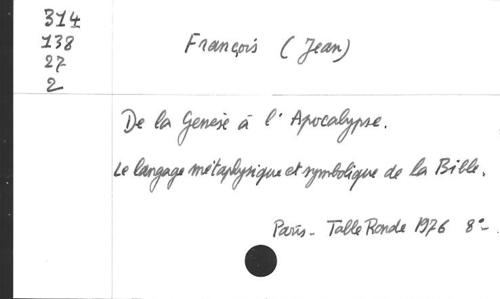 314
138
27
2
François (Jean)
De la Genèse à l'Apocalypse.
Le langage métaphysique et symbolique de la Bible.
Paris - Table Ronde 1976 8°